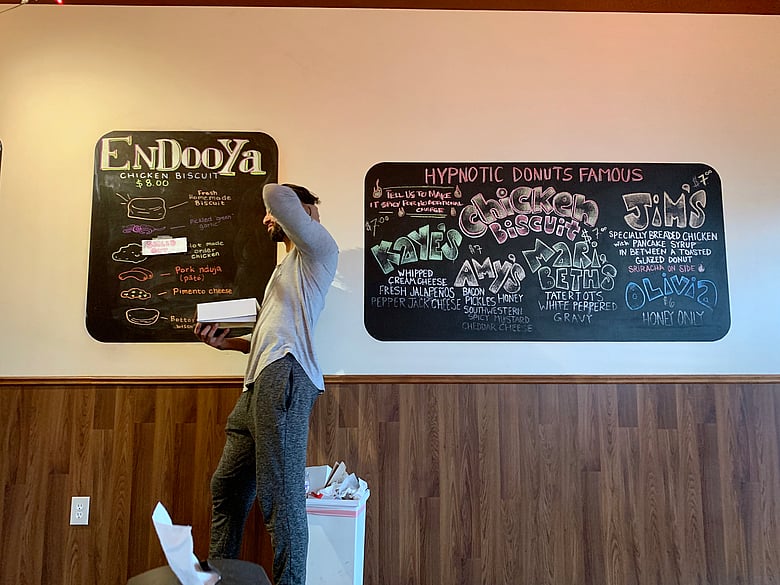 EnDooYa
CHICKEN BISCUIT
$8.00
Fresh
Homemade
Biscuit
Pickled green
garlic
made
order
Chicken
Pork nduja
(pâté)
Pimento cheese
HYPNOTIC DONUTS FAMOUS
TELL US TO MAKE
IT SPICY FOR NO ADDITIONAL
CHARGE
Chicken
Biscuit
$7.00
KAYE'S
WHIPPED
CREAM CHEESE
FRESH JALAPEÑOS
PEPPER JACK CHEESE
$7
AMY'S
BACON
PICKLES HONEY
SOUTHWESTERN
SPICY MUSTARD
CHEDDAR CHEESE
MARI
BETH'S
TATER TOTS
WHITE PEPPERED
GRAVY
$7.00
JIM'S
SPECIALLY BREADED CHICKEN
with PANCAKE SYRUP
IN BETWEEN A TOASTED
GLAZED DONUT
SRIRACHA ON SIDE
OLIVIA
HONEY ONLY